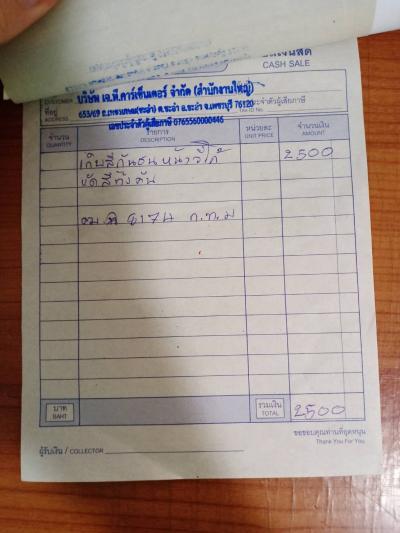 CASH SALE
CUSTOMER บริษัท เอ.พี.คาร์เซ็นเตอร์ จำกัด (สำนักงานใหญ่)
ที่อยู่ ADDRESS 653/69 ต.ชะอำ อ.ชะอำ จ.เพชรบุรี 76120
เลขประจำตัวผู้เสียภาษี 0765560000446
จำนวน QUANTITY รายการ DESCRIPTION หน่วยละ UNIT PRICE จำนวนเงิน AMOUNT
เก็บสีกันชนหน้า 2500
ขัดสีทั้งคัน
8174 ก.ท.ม
บาท BAHT รวมเงิน TOTAL 2500
ขอขอบคุณท่านที่อุดหนุน
Thank You For You
ผู้รับเงิน / COLLECTOR